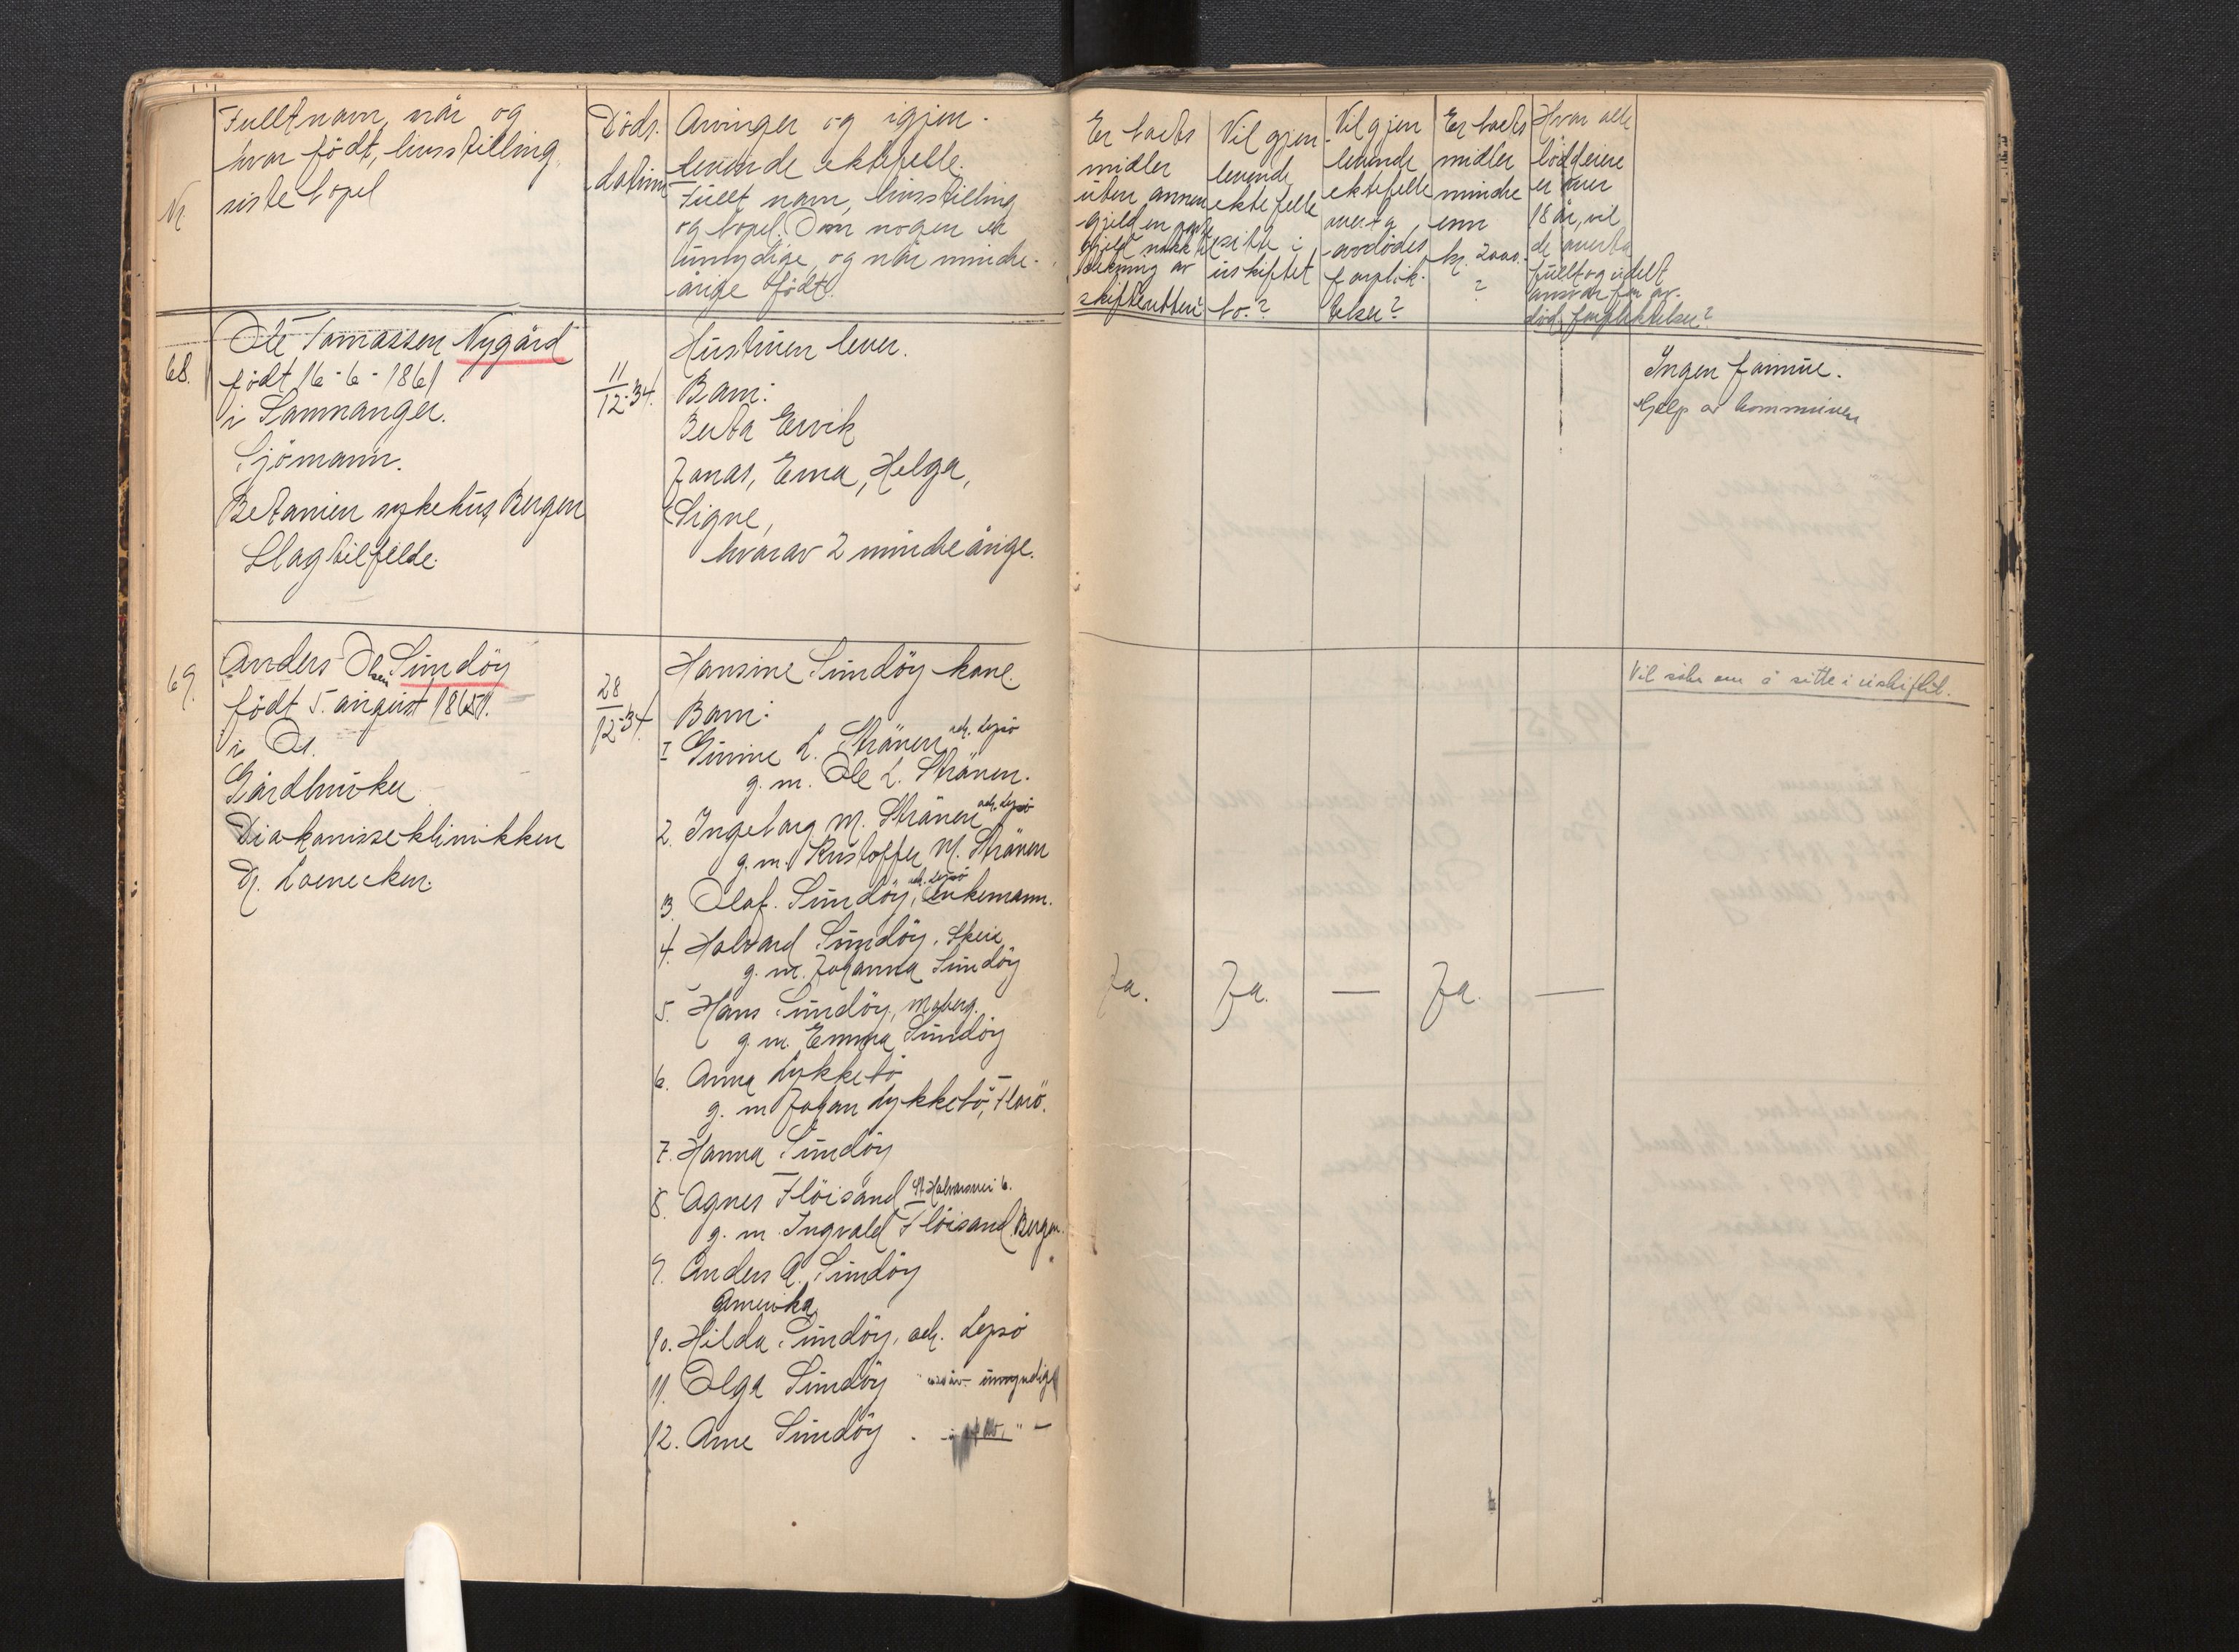 Nr.
Fullt navn, når og
hvor födt, livsstilling,
siste bopel
Döds-
datum
Arvinger og igjen-
levende ektefelle.
Fullt navn, livsstilling
og bopel. Om nogen er
umyndige, og når mindre-
årige födt.
Er boets
midler
uten annen
gjeld en
gjeld nok til
dekning av
skifteretten?
Vil gjen-
levende
ektefelle
sitte i
uskiftet
bo?
Vil gjen-
levende
ektefelle
overta
avdödes
forplik-
telser?
Er boets
midler
mindre
enn
kr. 2000.
?
Hvor alle
loddeiere
er over
18 år, vil
de overta
fullt og udelt
ansvar for av-
död. forpliktelser?
68.
Ole Tomassen Nygård
födt 16-6-1861
i Samnanger.
Sjömann.
Betanien sykehus, Bergen
Slagtilfelde.
11/12-34.
Hustruen lever.
Barn:
Berta Ervik
Jonas, Erna, Helga,
Signe,
hvorav 2 mindreårige.
Ingen formue.
Hjelp av kommunen
69.
Anders Olsen Sundöy
födt 5. august 1865.
i Os.
Gårdbruker
Diakonisseklinikken
Dr. Loenecken.
28/12-34.
Hansine Sundöy kone.
Barn:
1 Gurine L. Strönen adr. Lepsö
g. m. Ole L. Strönen.
2. Ingeborg M. Strönen adr. Lepsö
g. m. Kristoffer M. Strönen
3. Olaf. Sundöy, adr. Lepsö Enkemann.
4. Halvard Sundöy, Skeie
g. m. Johanna Sundöy
5. Hans Sundöy, Moberg.
g. m. Emma Sundöy
6. Anna Lykkebö
g. m Johan Lykkebö, Florö.
7. Hanna Sundöy
8. Agnes Flöisand St. Halvardsvei 6.
g. m. Ingvald Flöisand Bergen.
9. Anders A. Sundöy
Amerika
10. Hilda Sundöy, adr. Lepsö
11. Olga Sundöy " umyndig
12. Arne Sundöy . - " -
Ja.
Ja.
—
Ja.
—
Vil söke om å sitte i uskiftet.